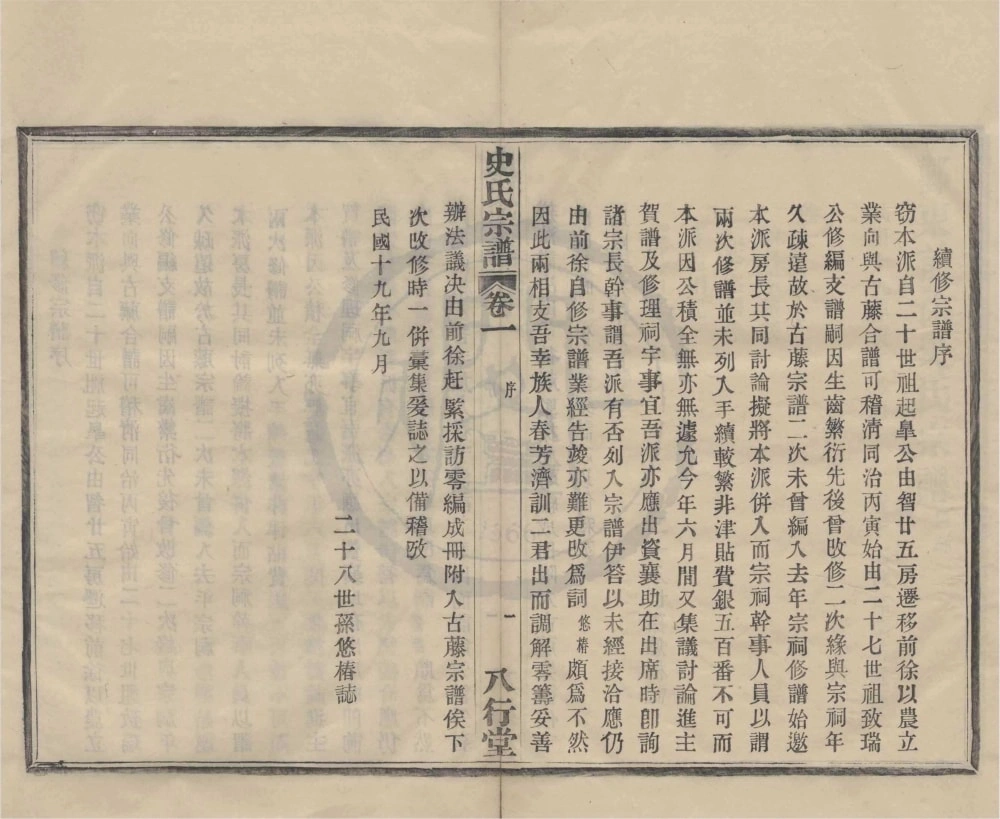 續修宗譜序
窃本派自二十世祖起臯公由智廿五房遷移前徐以農立
業向與古藤合譜可稽清同治丙寅始由二十七世祖致瑞
公修編支譜嗣因生齒繁衍先後曾改修二次緣與宗祠年
久疎遠故於古藤宗譜二次未曾編入去年宗祠修譜始邀
本派房長共同討論擬將本派併入而宗祠幹事人員以謂
兩次修譜並未列入手續較繁非津貼費銀五百番不可而
本派因公積全無亦無遽允今年六月間又集議討論進主
賀譜及修理祠宇事宜吾派亦應出資襄助在出席時卽詢
諸宗長幹事謂吾派有否列入宗譜伊答以未經接洽應仍
由前徐自修宗譜業經告竣亦難更改爲詞悠椿頗爲不然
因此兩相支吾幸族人春芳濟訓二君出而調解零籌妥善
史氏宗譜 卷一 序 一 八行堂
辦法議决由前徐赶緊採訪零編成冊附入古藤宗譜俟下
次改修時一併彙集爰誌之以備稽攷
二十八世孫悠椿誌
民國十九年九月